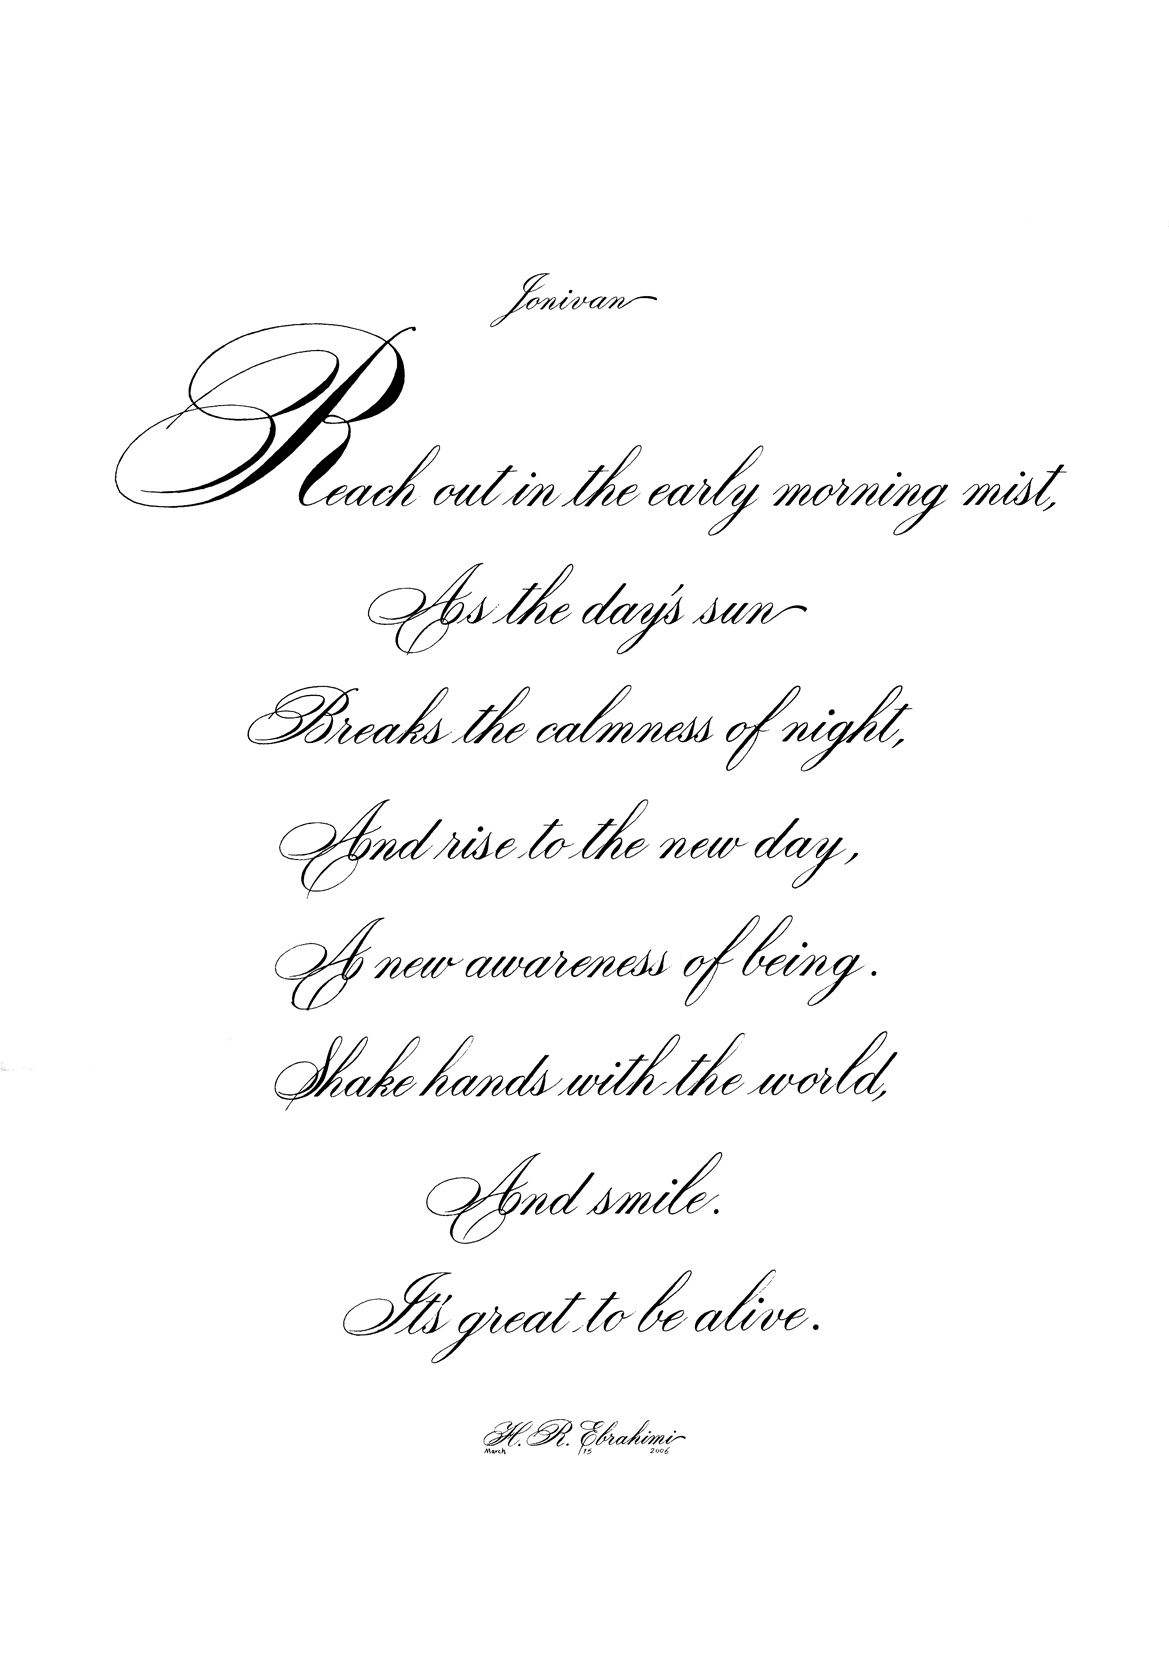 Jonivan
Reach out in the early morning mist,
As the day's sun
Breaks the calmness of night,
And rise to the new day,
A new awareness of being.
Shake hands with the world,
And smile.
It's great to be alive.
H. R. Ebrahimi
March 15 2006